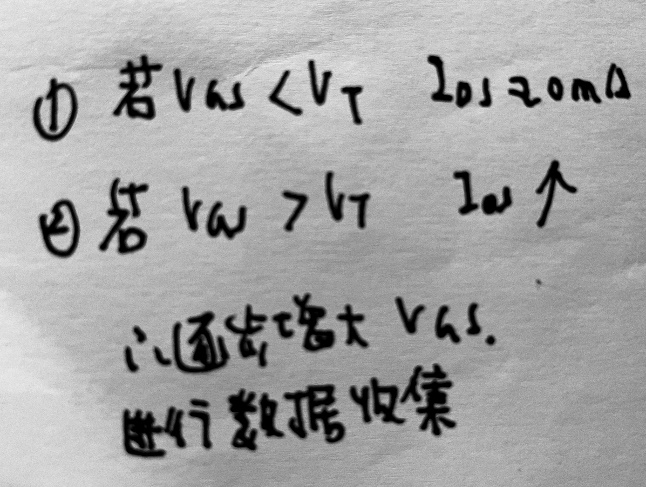 ① 若VGS<VT IDS≈0mA
② 若VGS>VT IDS↑
∴逐步增大VGS.
进行数据收集